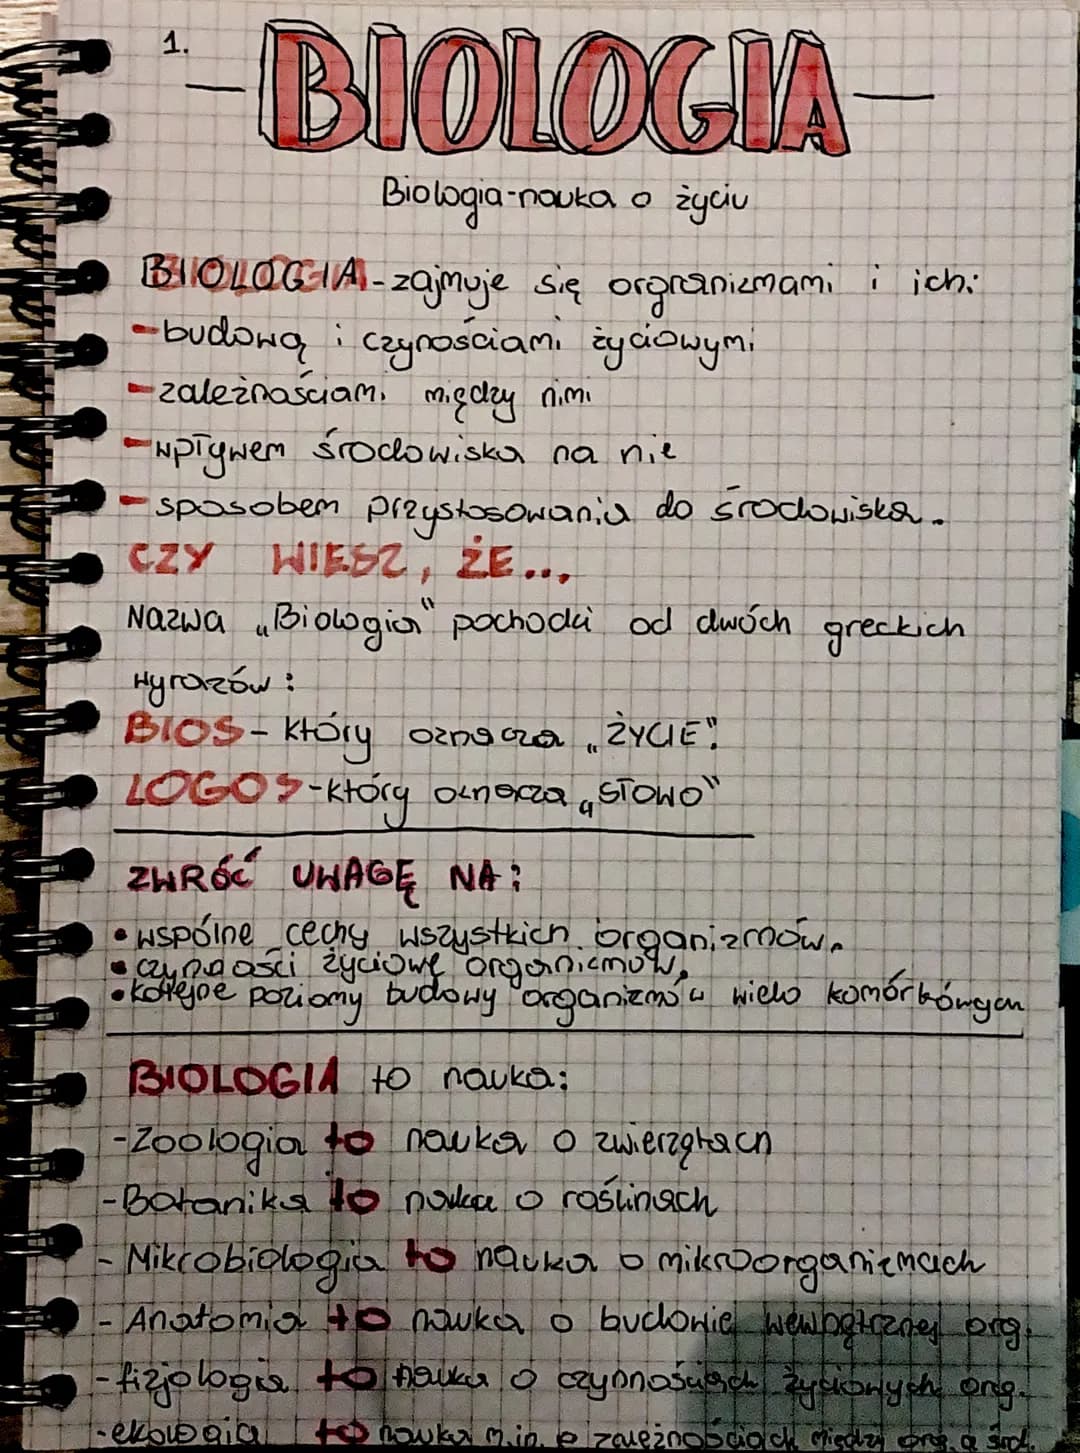 1.
BIOLOGIA
Biologia-nauka o życiu
BIOLOGIA-zajmuje się orgranizmami i ich:
-budową i czynościami życiowymi
-zależnaściami między nimi
-wpływem środowiska na nie
-sposobem przystosowania do środowiska.
CZY WIESZ, ŻE...
Nazwa „Biologia" pochodzi od dwóch greckich
wyrazów:
BIOS-który oznacza „ŻYCIE".
LOGOS-który oznacza „SŁOWO"
ZWRÓĆ UWAGĘ NA:
•wspólne cechy wszystkich organizmów.
•czynności życiowe organizmów,
•kolejne poziomy budowy organizmów wielo komórkowych
BIOLOGIA to nauka:
-Zoologia to nauka o zwierzętach
-Botanika to nauka o roślinach
-Mikrobiologia to nauka o mikroorganizmach
-Anatomia to nauka o budowie wewnętrznej org.
-fizjologia to nauka o czynnościach życiowych org.
-ekologia to nauka m.in. o zależnościach między org. a środ.